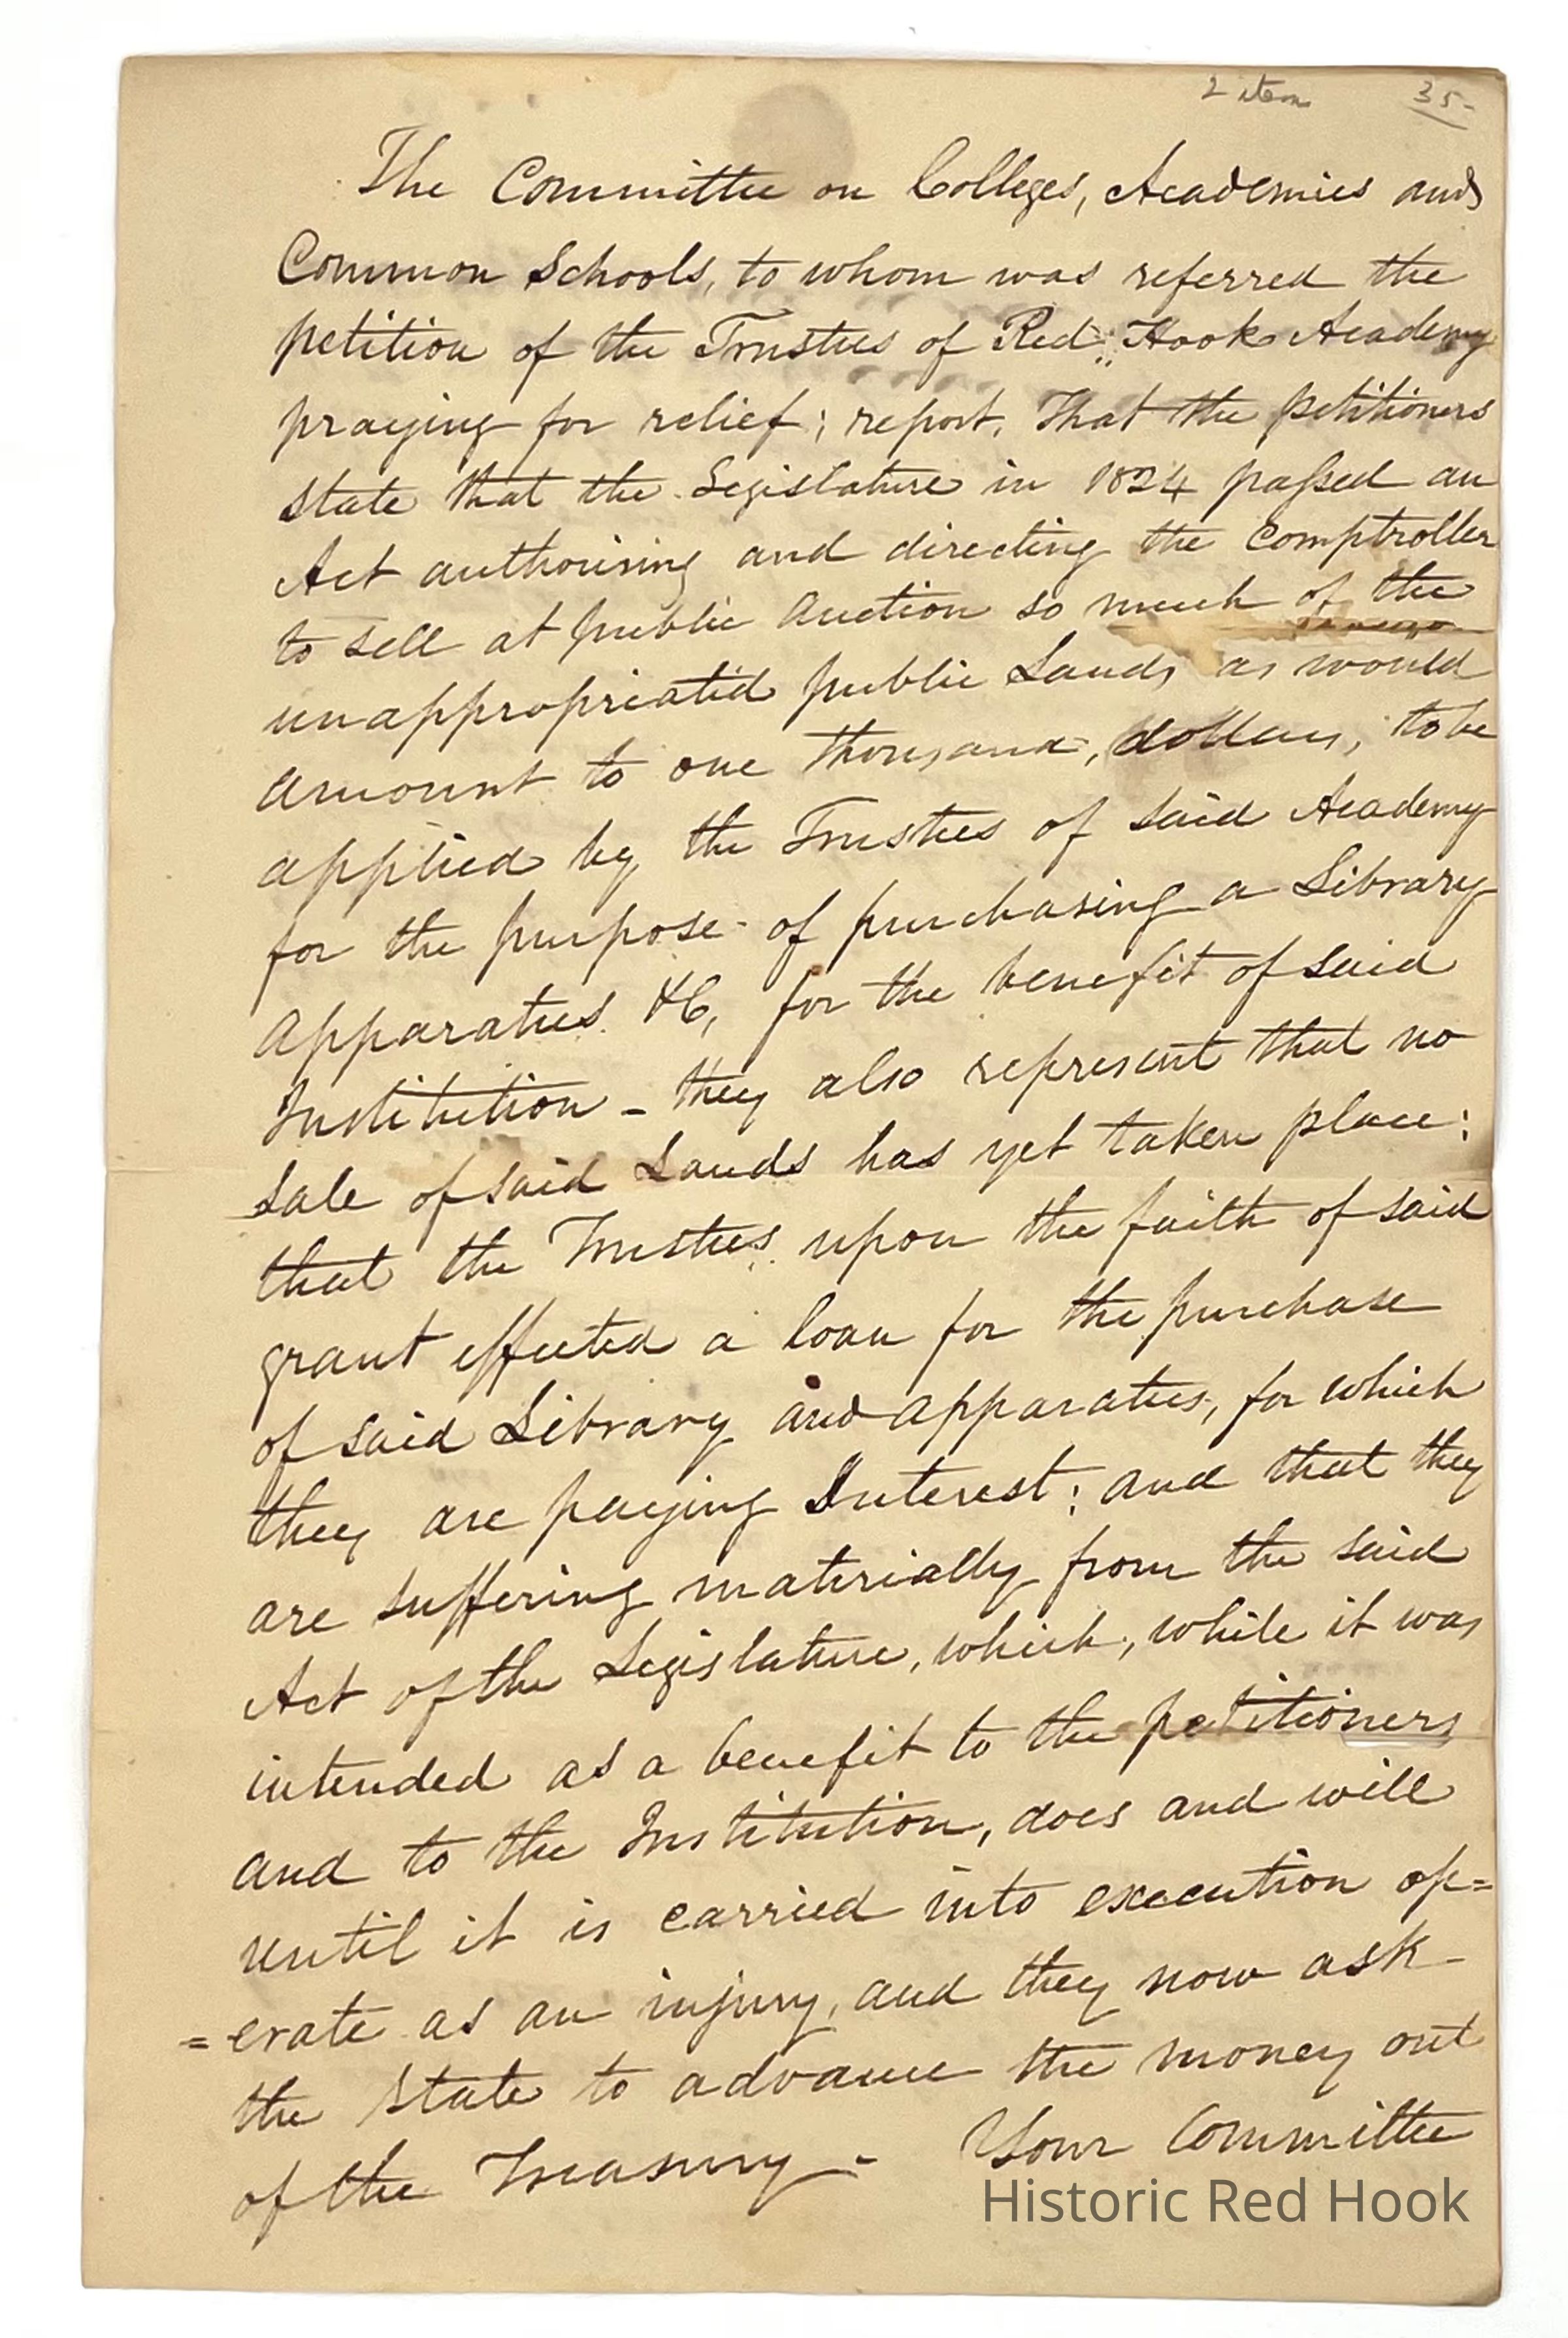 2 item 35-
The Committee on Colleges, Academies and
Common Schools, to whom was referred the
petition of the Trustees of Red-Hook Academy
praying for relief; report, That the petitioners
state that the Legislature in 1824 paſsed an
Act authorising and directing the Comptroller
to sell at public Auction so much of the
unappropriated public Lands as would
amount to one thousand, dollars, to be
applied by the Trustees of said Academy
for the purpose of purchasing a Library
Apparatus &C, for the benefit of said
Institution - they also represent that no
sale of said Lands has yet taken place:
that the Trustees upon the faith of said
grant effected a loan for the purchase
of said Library and apparatus, for which
they are paying Interest; and that they
are suffering materially from the said
Act of the Legislature, which, while it was
intended as a benefit to the petitioners
and to the Institution, does and will
until it is carried into execution op=
=erate as an injury, and they now ask
the State to advance the money out
of the Treasury - Your Committee
Historic Red Hook